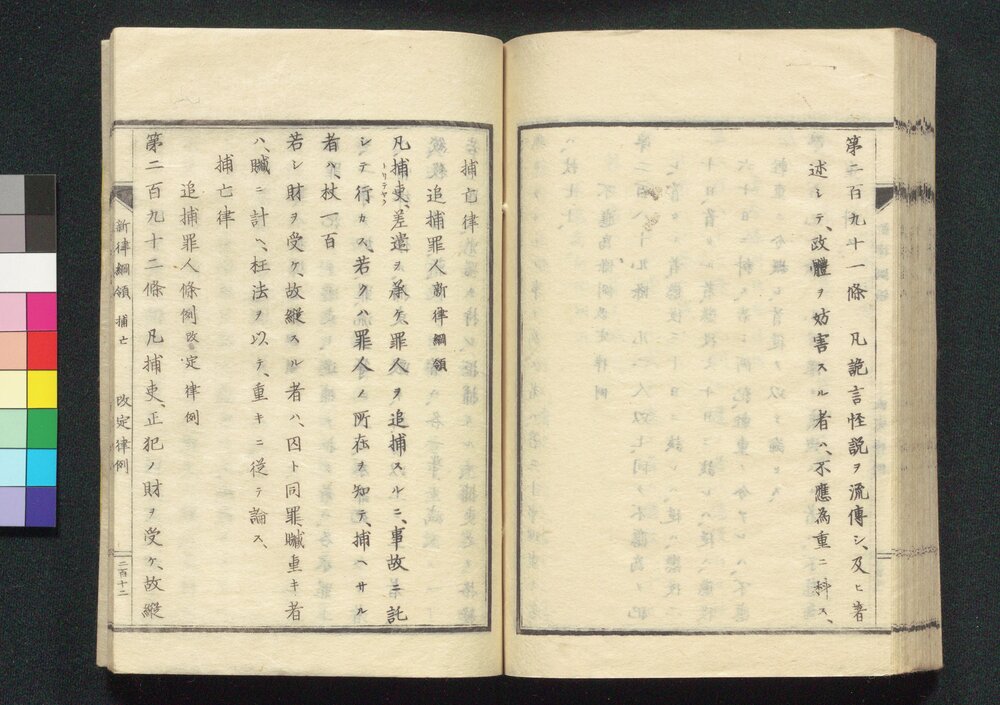 第二百九十一條　凡詭言怪説ヲ流傳シ、及ヒ著
述シテ、政體ヲ妨害スル者ハ、不應為重ニ科ス、
捕亡律
追捕罪人新律綱領
凡捕吏、差遣ヲ承ケ、罪人ヲ追捕スルニ、事故ニ託
トリテカタ
シテ行カス、若クハ罪人ノ所在ヲ知テ、捕ヘサル
者ハ、杖一百
若シ財ヲ受ケ、故縱スル者ハ、囚ト同罪贓重キ者
ハ、贓ニ計ヘ、枉法ヲ以テ、重キニ従テ論ス、
捕亡律
追捕罪人條例改定律例
第二百九十二條　凡捕吏、正犯ノ財ヲ受ケ、故縱
新律綱領　捕亡　改定律例
二百十二